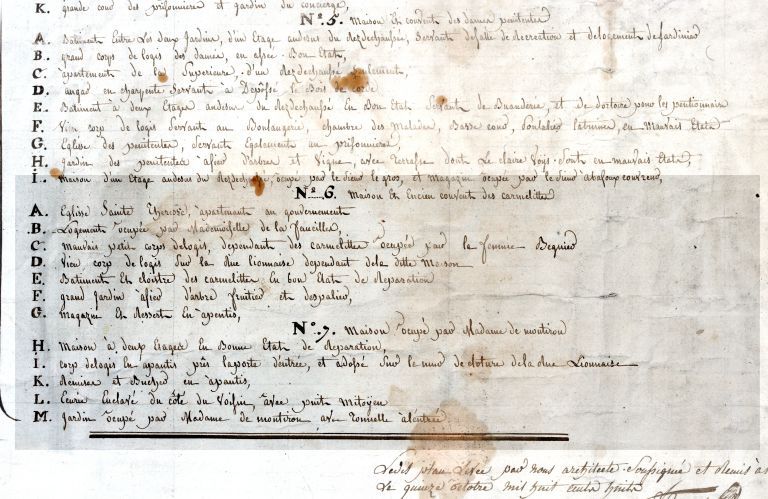 K. grande cour des prisonniere et jardin du concierge,
N.° 5. Maison Et couvent des dames penitentes
A. Batiment Entre Les deux Jardins, d'un Etage audesus du Rezdechaussée, servant desalle de Recreation et delogement dejardinier
B. grand corps de logis des dames, en assée Bon Etat,
C. apartement de la Superieure, d'un Rezdechaussé seulement,
D. angad en charpente servant a Dépossé le Bois de corde
E. Batiment a deux Etages audesur du Rezdechaussé En Bon Etat servant de Buanderie, et de dortoire pour les pentionnaire
F. Vieu corps de logis servant au Boulangerie, chambre des Malades, Basse cour, Poulalier latrinne, en Mauvais Etats
G. Eglise des penitentes, servant Egalement au prisonniere,
H. Jardin des penitentes afier d'arbres et Vigne, avec Terrasse dont Le claire Voys sont en mauvais Etats,
I. Maison d'un Etage audesus du Rezdechaussé, ocupé par le sieur le gros, et Magazin ocupée par le sieur abafoux couvreur,
N.° 6. Maison Et Encien couvent des carmelittes
A. Eglise Sainte Therese, apartenant au gouvernement
B. Logement ocupée par Mademoiselle de la faucille,
C. Mauvais petit corps delogis, dependant des carmelittes ocupée par la femme Bequier
D. Vieu corps de logis sur la Rue lionnaise dependant dela ditte Maison
E. Batiment Et cloistre des carmelittes En bon Etat de Reparation
F. grand Jardin afier d'arbre fruitier et despalier,
G. Magazin Et Resserre En apentis,
N.° 7. Maison ocupé par Madame de montirou
H. Maison a deux Etages En Bonne Etat de Reparation,
I. corp delogis En apantis prés laporte d'entrée, et adossé sur le mur de cloture dela Rue Lionnaise
K. Remises et Bucher en apantis,
L. Ecurie Enclavé du côté du Voisin, avec puit Mitoyen
M. Jardin ocupé par Madame de montirou avec Tonnelle alentrée
Ledit plan Levée par nous architecte soussignée et Remis a
Le quinze octobre mil huit cents huite